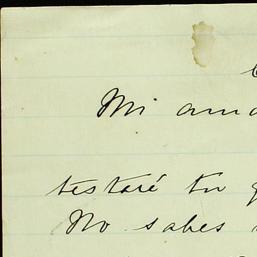 Mi
testaré tu
No sabes